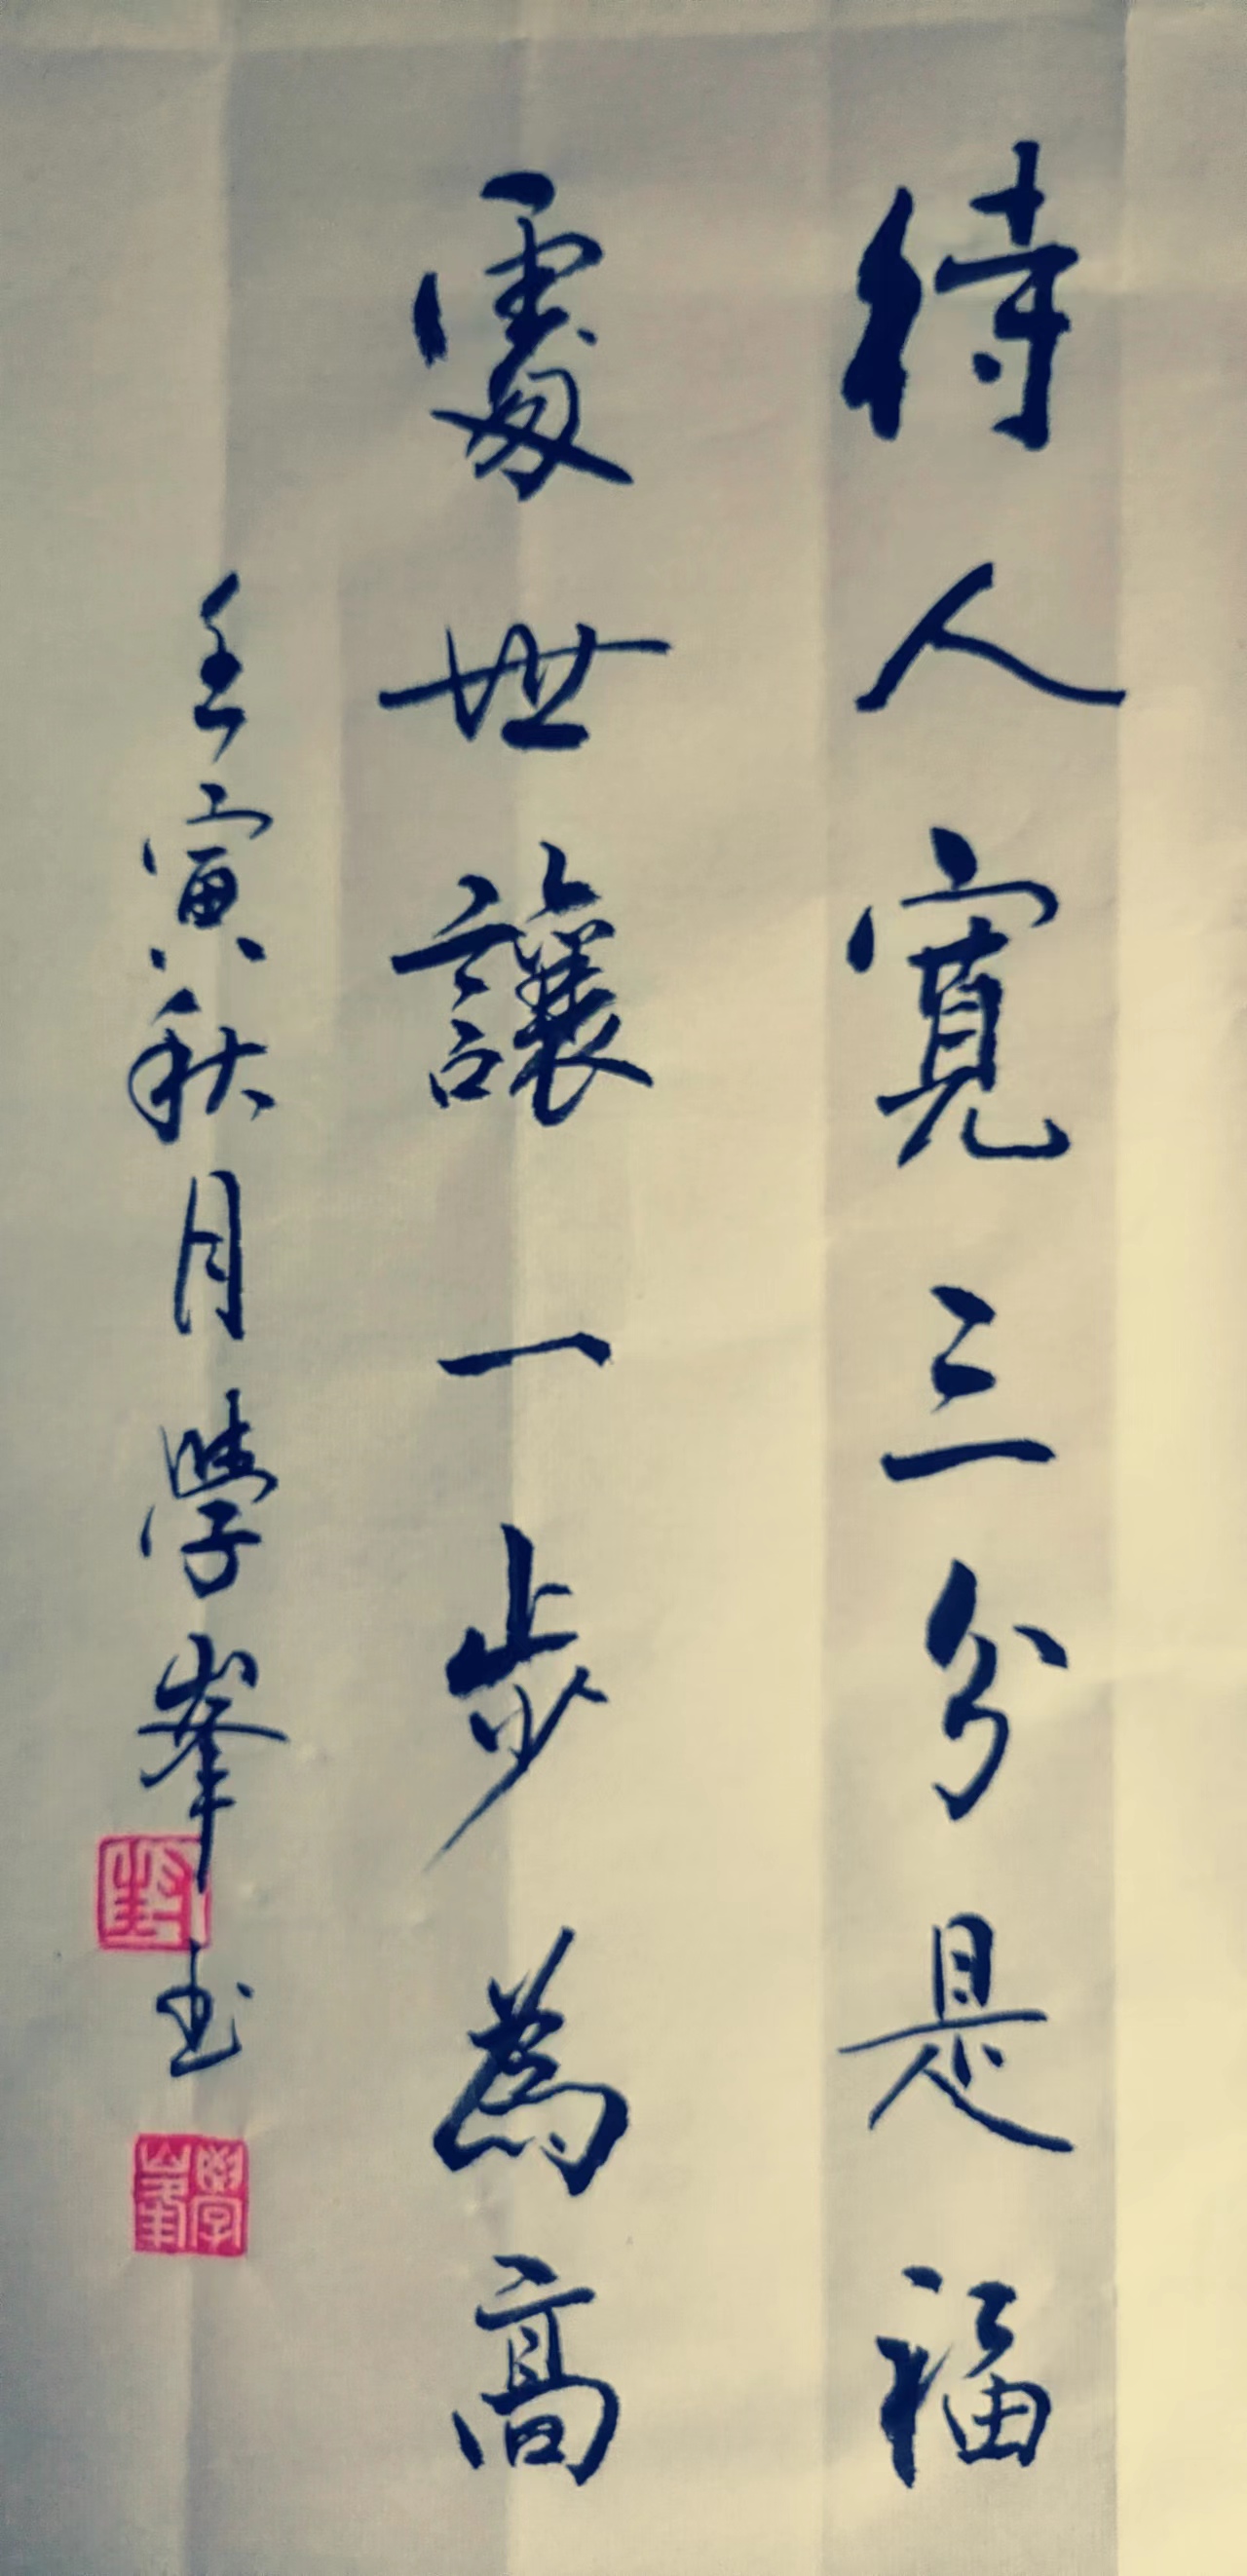 待人寬三分是福
處世讓一步為高
壬寅秋月學峯书
學峯